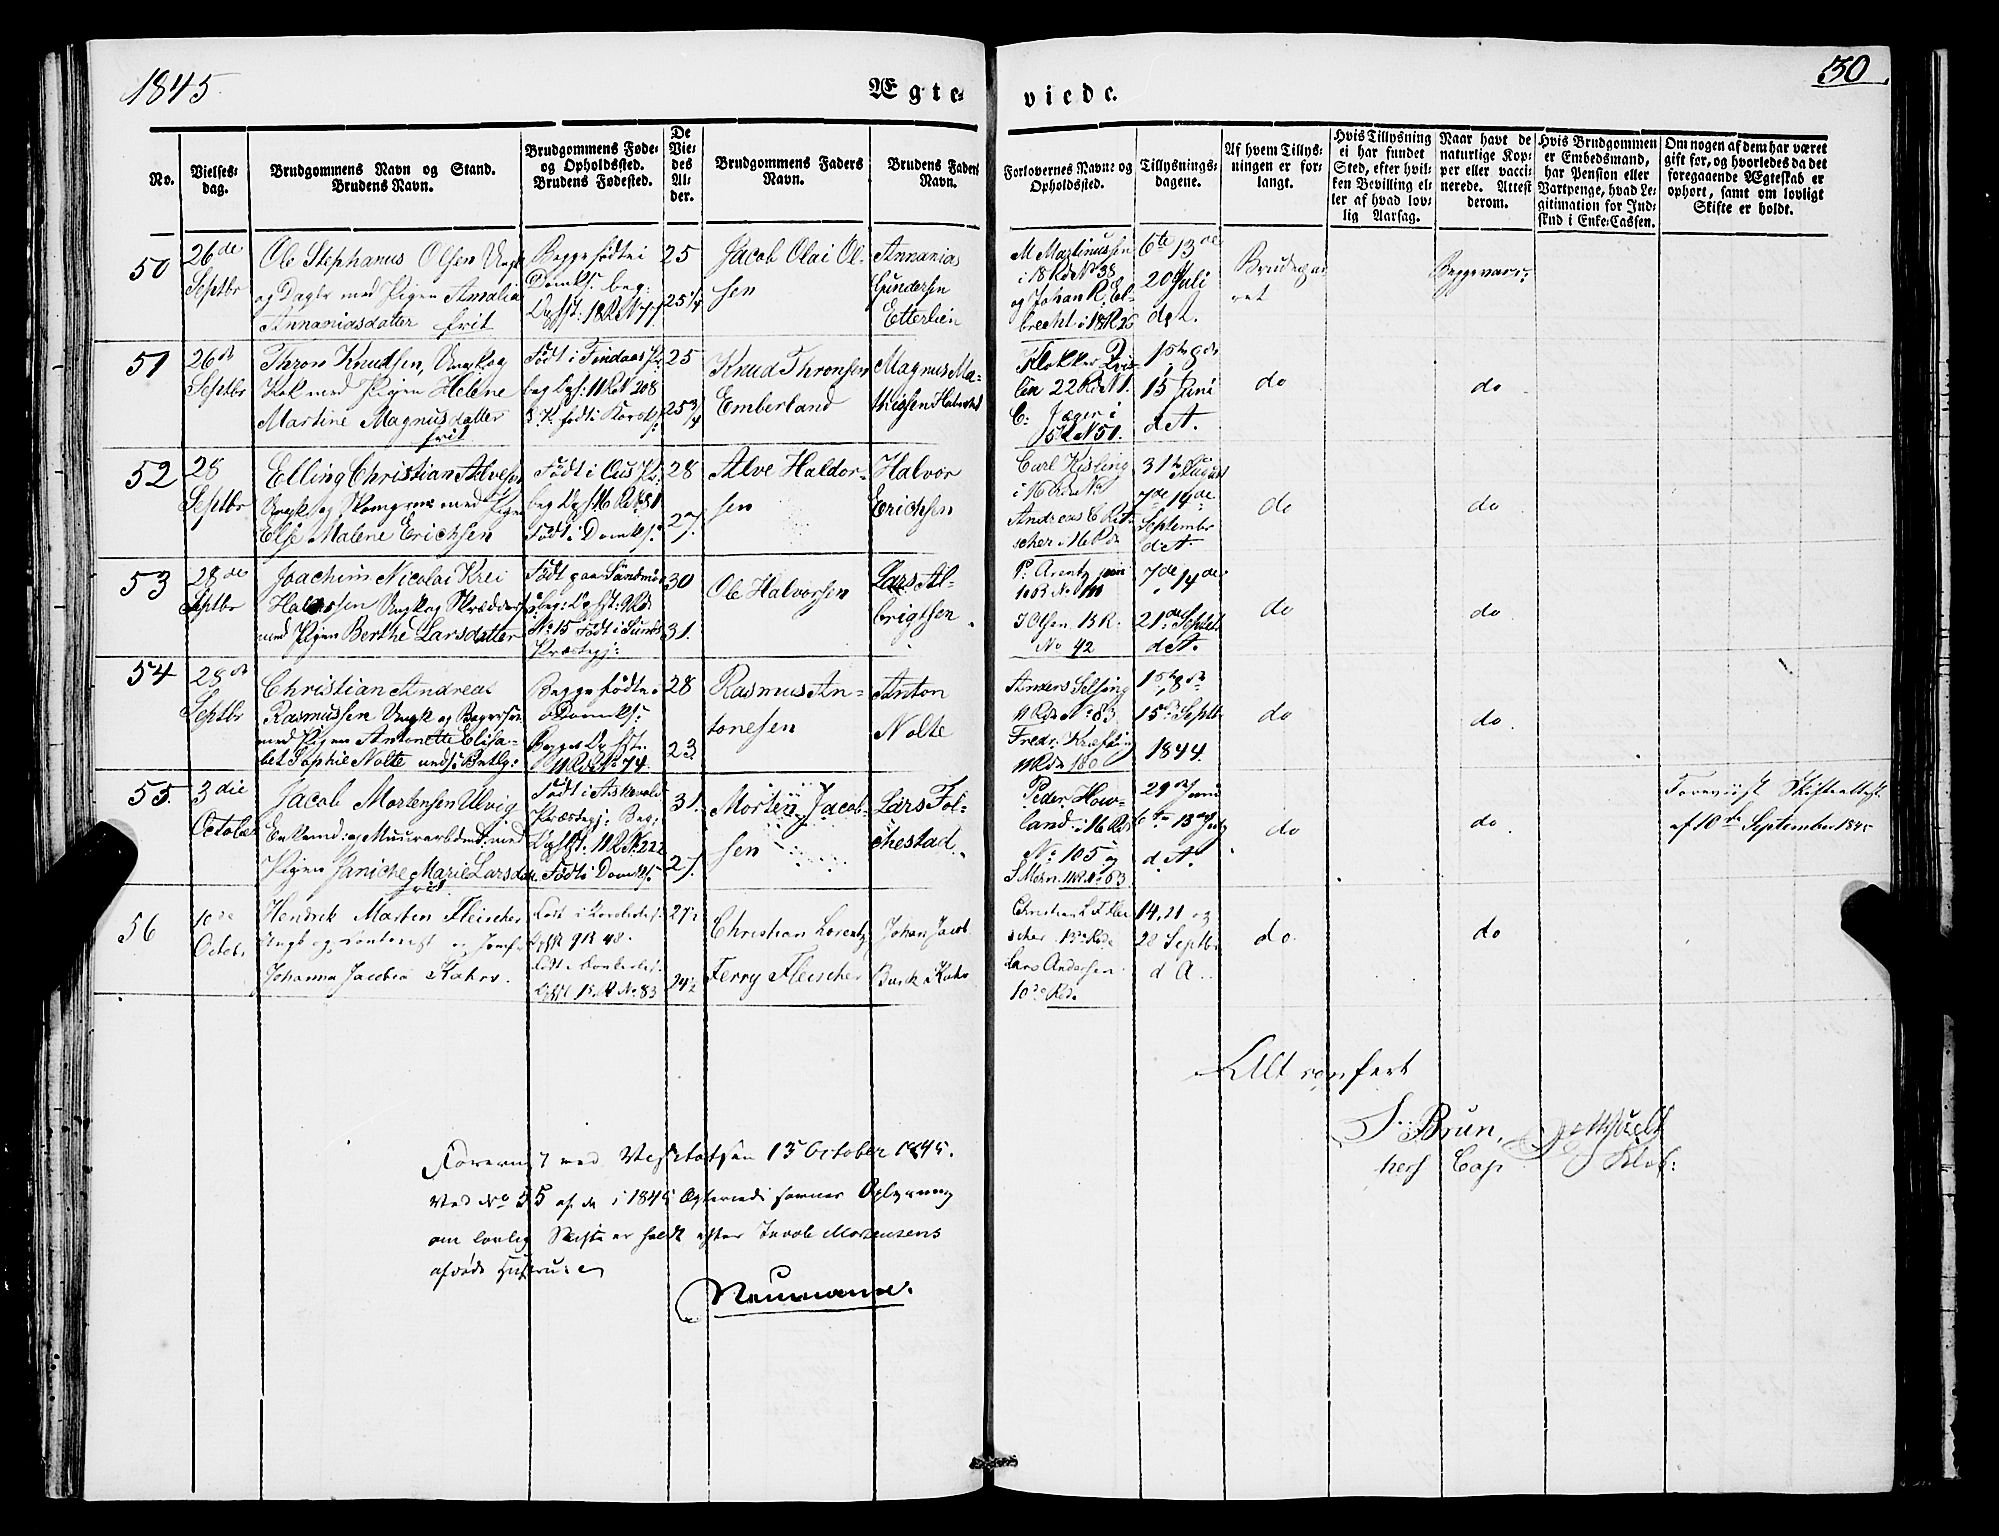 1845
Ægte-
viede.
30
No.
Vielses-
dag.
Brudgommens Navn og Stand.
Brudens Navn.
Brudgommens Føde-
og Opholdssted.
Brudens Fødested.
De
Vie-
des
Al-
der.
Brudgommens Faders
Navn.
Brudens Faders
Navn.
Forlovernes Navne og
Opholdssted.
Tillysnings-
dagene.
Af hvem Tillys-
ningen er for-
langt.
Hvis Tillysning
ei har fundet
Sted, efter hvil-
ken Bevilling el-
ler af hvad lov-
lig Aarsag.
Naar havt de
naturlige Kop-
per eller vacci-
nerede. Attest
derom.
Hvis Brudgommen
er Embedsmand,
har Pension eller
Vartpenge, hvad Le-
gitimation for Ind-
skud i Enke-Cassen.
Om nogen af dem har været
gift før, og hvorledes da det
foregaaende Ægteskab er
ophørt, samt om lovligt
Skifte er holdt.
50
26de
Septbr
Ole Stephanus Olsen Ungk
og Dagbr med Pigen Amalia
Annaniasdatter frit
Begge fødte i
Domks: beg:
25
25 1/4
Jacob Olai Ol-
sen
Annanias
Gundersen
Etterlien
M Martinussen
i 18 Rd No 38
og Johan R. El-
brecht i 18 R 26
6te 13de
20 Juli
d. A.
Brudgom
Begge vacc:
51
26de
Septbr
Thron Knudsen, Ungk og
Kok med Pigen Helene
Martine Magnusdatter
frit
Født i Findaas Pr
beg Lgs: 11 R N 208
25
25 3/4
Knud Thronsen
Emberland
Magnus Ma-
thisen Halvorst
Klokker
22 Rd N 1.
C: Jæger i
5 R N 51.
1ste 8de
15 Juni
d A.
do
do
52
28
Septbr
Elling Christian Alvesen
Ungk og med Pigen
Else Malene Erichsen
Født i Ous Pr:
Født i Domks:
28
27.
Alve Haldor-
sen
Halvor
Erichsen
Carl Kisling
i 16 Rd No
Andreas C Rit-
scher i 16 Rd
31te August
7de 14de
Septembr
d A.
do
do
53
28de
Septbr
Joachim Nicolai Krei
Halvorsen Ungk og Skrædder
med Pigen Berthe Larsdatter
Født paa Sundmør
No 15 Født i Sunds
Præstegj:
30
31.
Ole Halvorsen
Lars Al-
brigtsen
P: Arentz
J Olsen 13 R.
No 42
7de 14de
21de Septbr
d A.
do
do
54
28de
Septbr
Christian Andreas
Rasmussen Ungk og
med Pigen Antonette Elisa-
bet Sophie Nolte
Begge fødte i
Domks:
11 Rd No 74.
28
23
Rasmus An-
tonesen
Anton
Nolte
Anders Selsing
11 Rd No 83
Fredr:
11 Rd 180
1ste 8de
15de Septbr
1844
do
do
55.
3die
October
Jacob Mortensen Ulvig
Enkemd: og Muurarbeid: med
Pigen Janiche Marie Larsdatt
frit
Født i Askevold
Præstegj: Beg:
Lgsst: 11 R N 222
Født i Domks:
31.
27.
Morten Jacob-
sen
Lars Fol-
chestad.
Peder How-
land i 16 Rd
No 105 og
S Mørn 11 R No 63
29de Juni
6te 13de July
d A.
do
do
Foreviist Skifteattest
af 10de September 1845
56
10de
Octob:
Hendrik Marten Fleischer
Ungk og Contorist og Jomfr
Johanna Jacobia Kahrs.
Lgsst 9 R 48.
13 R No 83
27 1/2
24 1/2
Christian Lorentz
Ferry Fleischer
Johan Jacob
Kahrs
Christian L F Flei
scher 13de Rode
Lars Andersen
10de Rode
14, 21 og
28 Septbr
d A.
do.
do
Alt confert
J. Brun,
hers Cap
Klok:
Foreviist ved Visitatsen 13 October 1845.
Ved No 55 af de i 1845 Ægteviede savnes Oplysning
om lovlig Skifte er holdt efter Jacob Mortensens
afdøde Hustrue
Neumann.